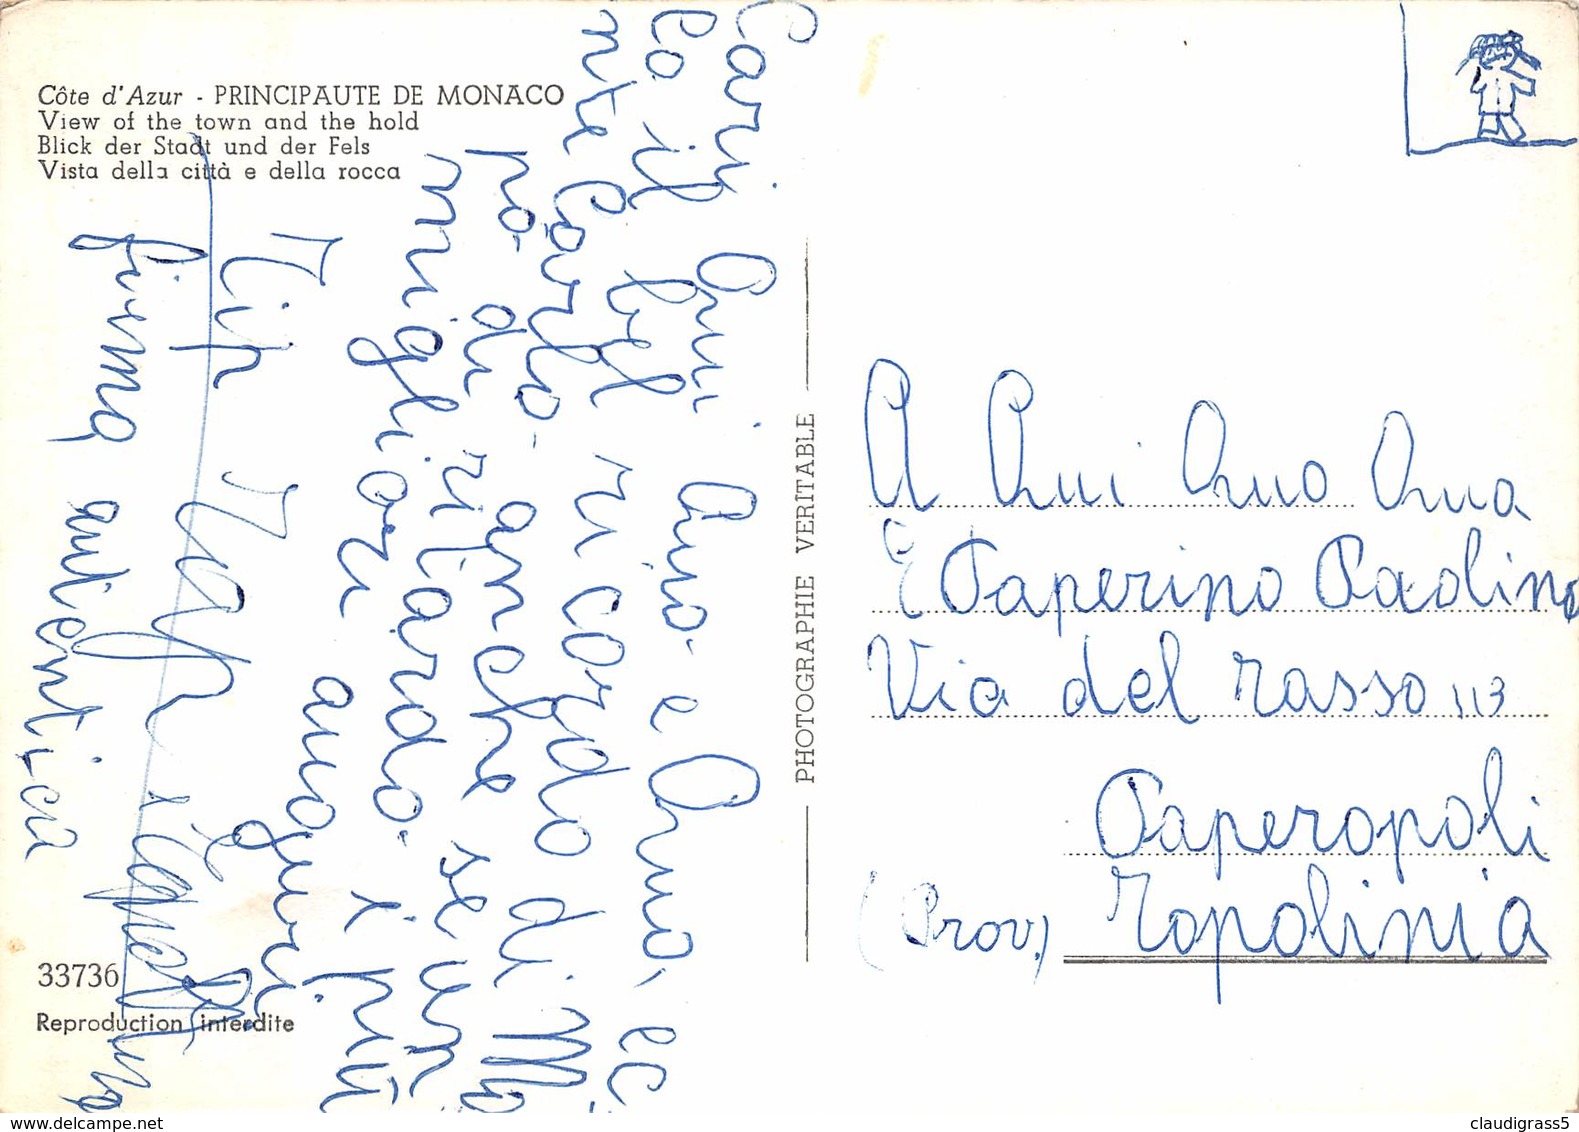 Côte d'Azur - PRINCIPAUTE DE MONACO
View of the town and the hold
Blick der Stadt und der Fels
Vista della città e della rocca
Cari Qui Quo e Quo, ec
co il bel ricordo di Mo
nte Carlo. anche se un
pò di ritardo. i
migliori auguri
firma autentica
33736
Reproduction interdite
PHOTOGRAPHIE VERITABLE
A Qui Quo Qua
E Paperino Paolino
Via del rasso 113
Paperopoli
(Prov.) Topolinia
www.delcampe.net
claudigrass5